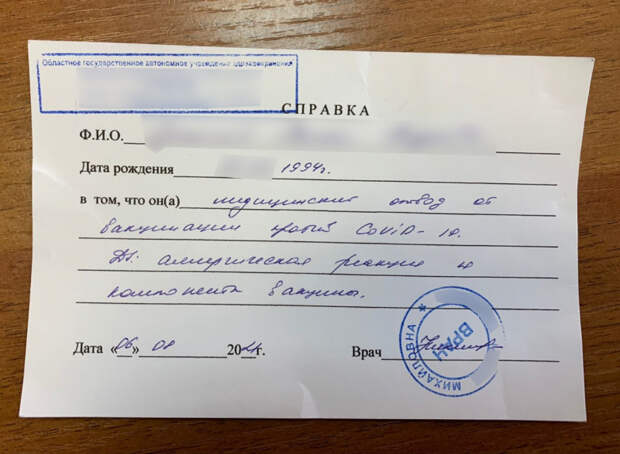 Областное государственное автономное учреждение здравоохранения
СПРАВКА
Ф.И.О.
Дата рождения 1994г.
в том, что он(а) медицинский отвод от
вакцинации против CoViD-19.
Ds: аллергическая реакция на
компоненты вакцины.
Дата «06» 08 2021г. Врач
МИХАЙЛОВНА
ВРАЧ